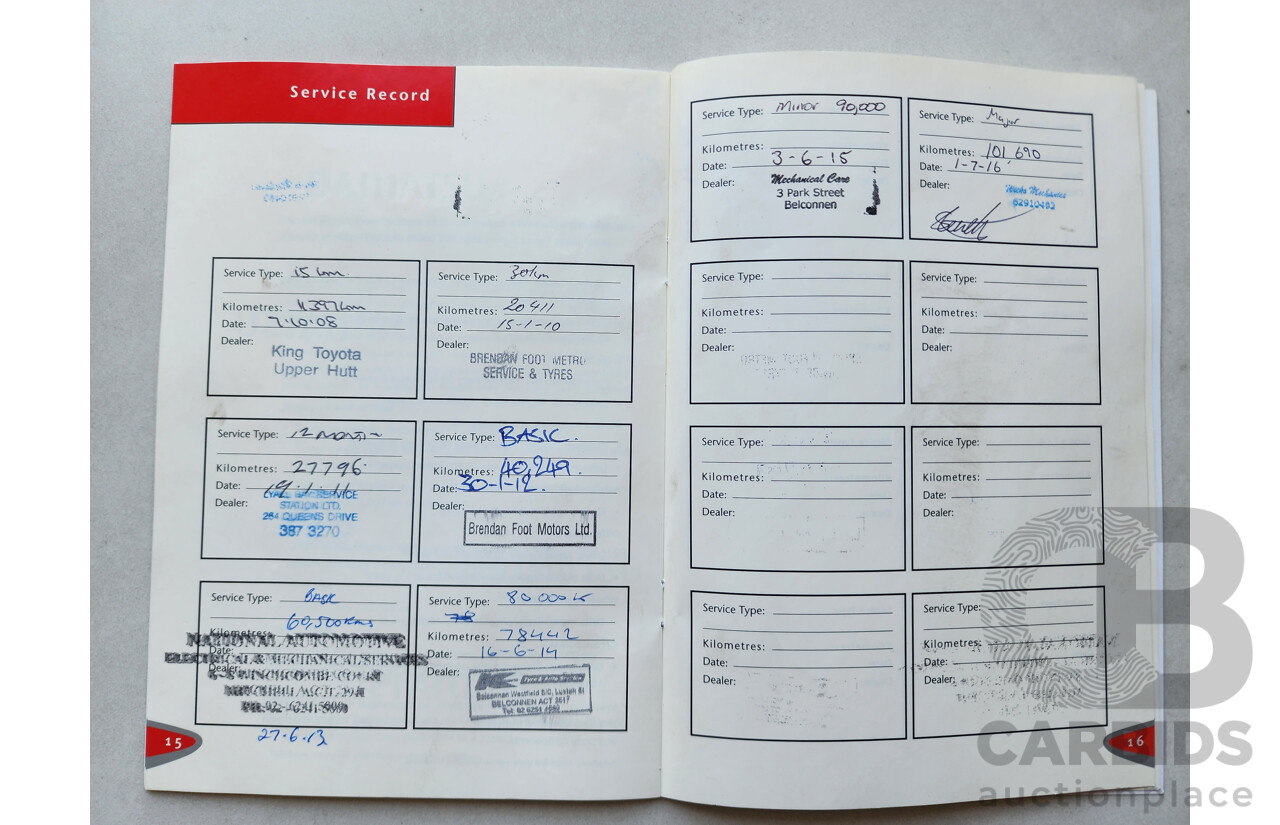 Service Record
Service Type: 15 km
Kilometres:
Date: 7.10.08
Dealer:
King Toyota
Upper Hutt
Service Type: 30km
Kilometres: 20411
Date: 15-1-10
Dealer:
BRENDAN FOOT METRO
SERVICE & TYRES
Service Type: 12 month
Kilometres: 27796
Date: 19.1.11
Dealer:
SERVICE
STATION LTD.
264 QUEENS DRIVE
387 3270
Service Type: BASIC.
Kilometres: 40,249.
Date: 30-1-12.
Dealer:
Brendan Foot Motors Ltd.
Service Type: BASIC
Kilometres: 60,500kms
Date:
Dealer:
NATIONAL AUTOMOTIVE
ELECTRICAL & MECHANICAL SERVICES
27.6.13
Service Type: 80 000 K
Kilometres: 78442
Date: 16-6-14
Dealer:
Tyre & Auto Service
Belconnen Westfield S/C, Luxton St
BELCONNEN ACT 2617
15
Service Type: Minor 90,000
Kilometres:
Date: 3-6-15
Dealer:
Mechanical Care
3 Park Street
Belconnen
Service Type: Major
Kilometres: 101 690
Date: 1-7-16
Dealer:
Mechanics
Service Type:
Kilometres:
Date:
Dealer:
Service Type:
Kilometres:
Date:
Dealer:
Service Type:
Kilometres:
Date:
Dealer:
Service Type:
Kilometres:
Date:
Dealer:
Service Type:
Kilometres:
Date:
Dealer:
Service Type:
Kilometres:
Date:
Dealer:
16
CARBIDS
auctionplace